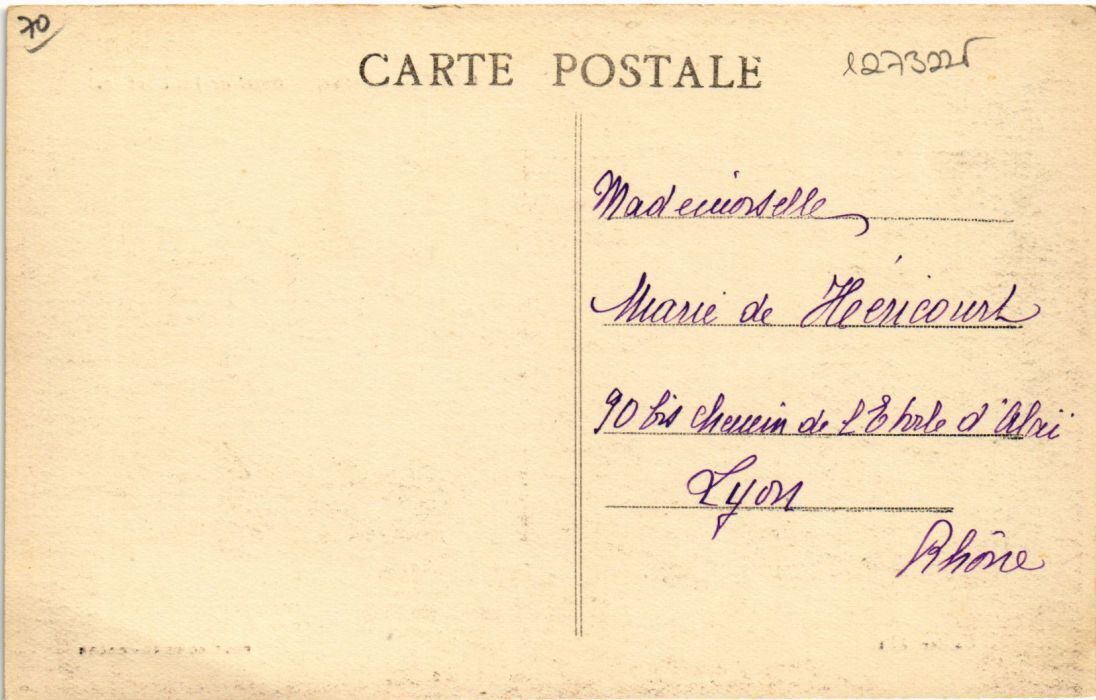 70
CARTE POSTALE
1273225
Mademoiselle
Marie de Héricourt
90 bis chemin de l'Etoile d'Alaï
Lyon
Rhône